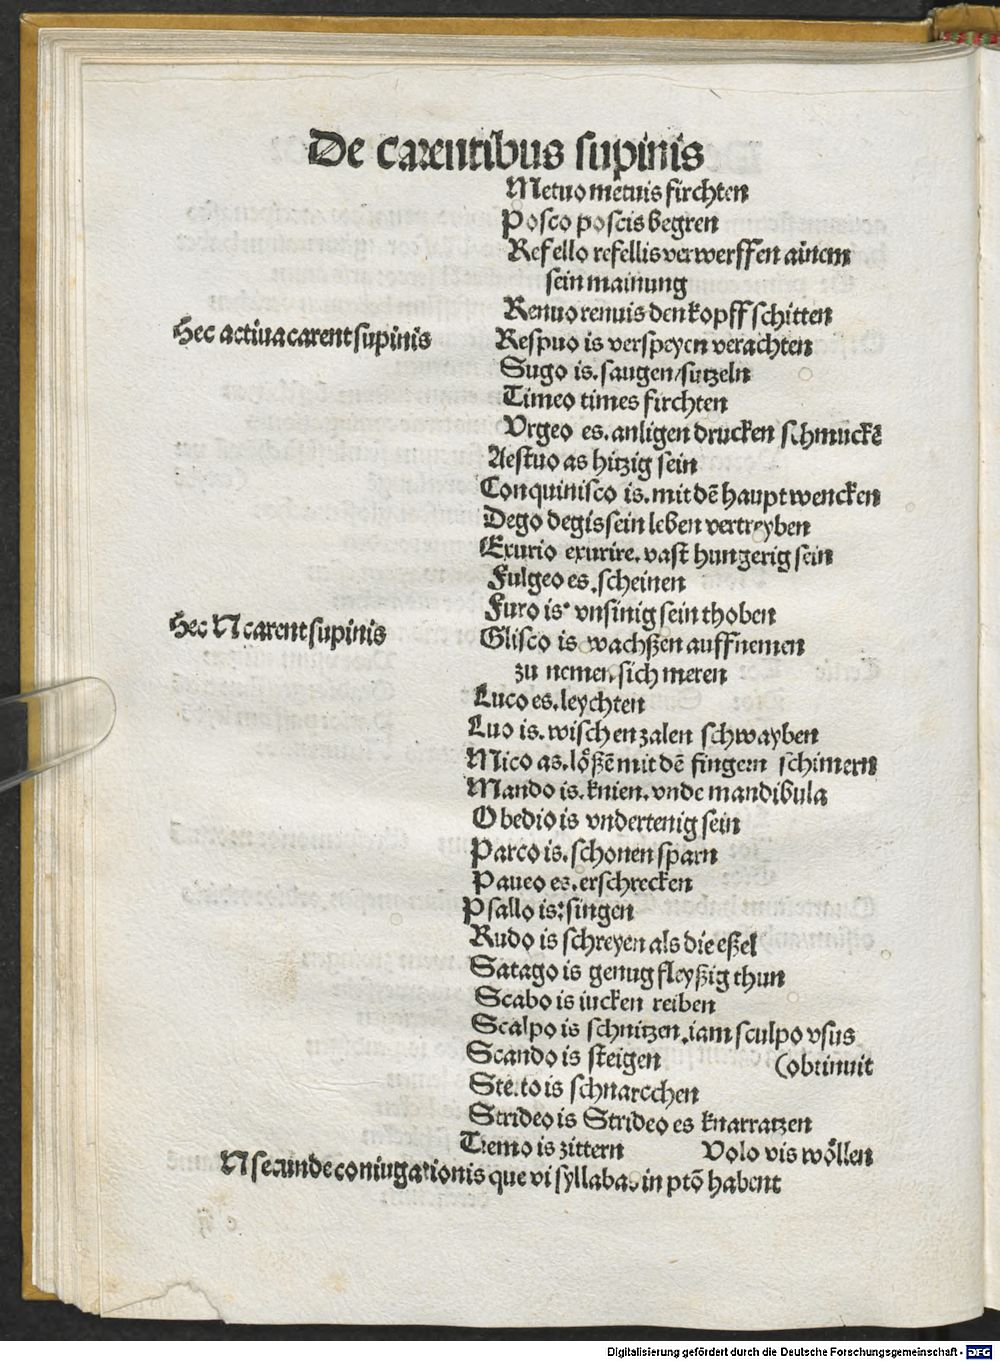 De carentibus supinis
Metuo metuis firchten
Posco poscis begren
Refello refellis verwerffen ainem
sein mainung
Renuo renuis den kopff schitten
Hec actiua carent supinis
Respuo is verspeyen verachten
Sugo is. saugen/sutzeln
Timeo times firchten
Vrgeo es. anligen drucken schmuckē
Aestuo as hitzig sein
Conquinisco is. mit dē haupt wencken
Dego degis sein leben vertreyben
Exurio exurire. vast hungerig sein
Fulgeo es. scheinen
Furo is vnsinig sein thoben
Hec N carent supinis
Glisco is wachßen auffnemen
zu nemen sich meren
Luceo es. leychten
Luo is. wischen zalen schwayben
Mico as. lößē mit dē fingern schimern
Mando is. knien. vnde mandibula
Obedio is vndertenig sein
Parco is. schonen sparn
Paueo es. erschrecken
Psallo is: singen
Rudo is schreyen als die eßel
Satago is genug fleyßig thun
Scabo is iucken reiben
Scalpo is schnitzen. iam sculpo vsus
Scando is steigen (obtinuit
Sterto is schnarcchen
Strideo is Strideo es knarratzen
Tremo is zittern Volo vis wöllen
N secunde coniugationis que vi syllabas in ptō habent
c ij
Digitalisierung gefördert durch die Deutsche Forschungsgemeinschaft - DFG